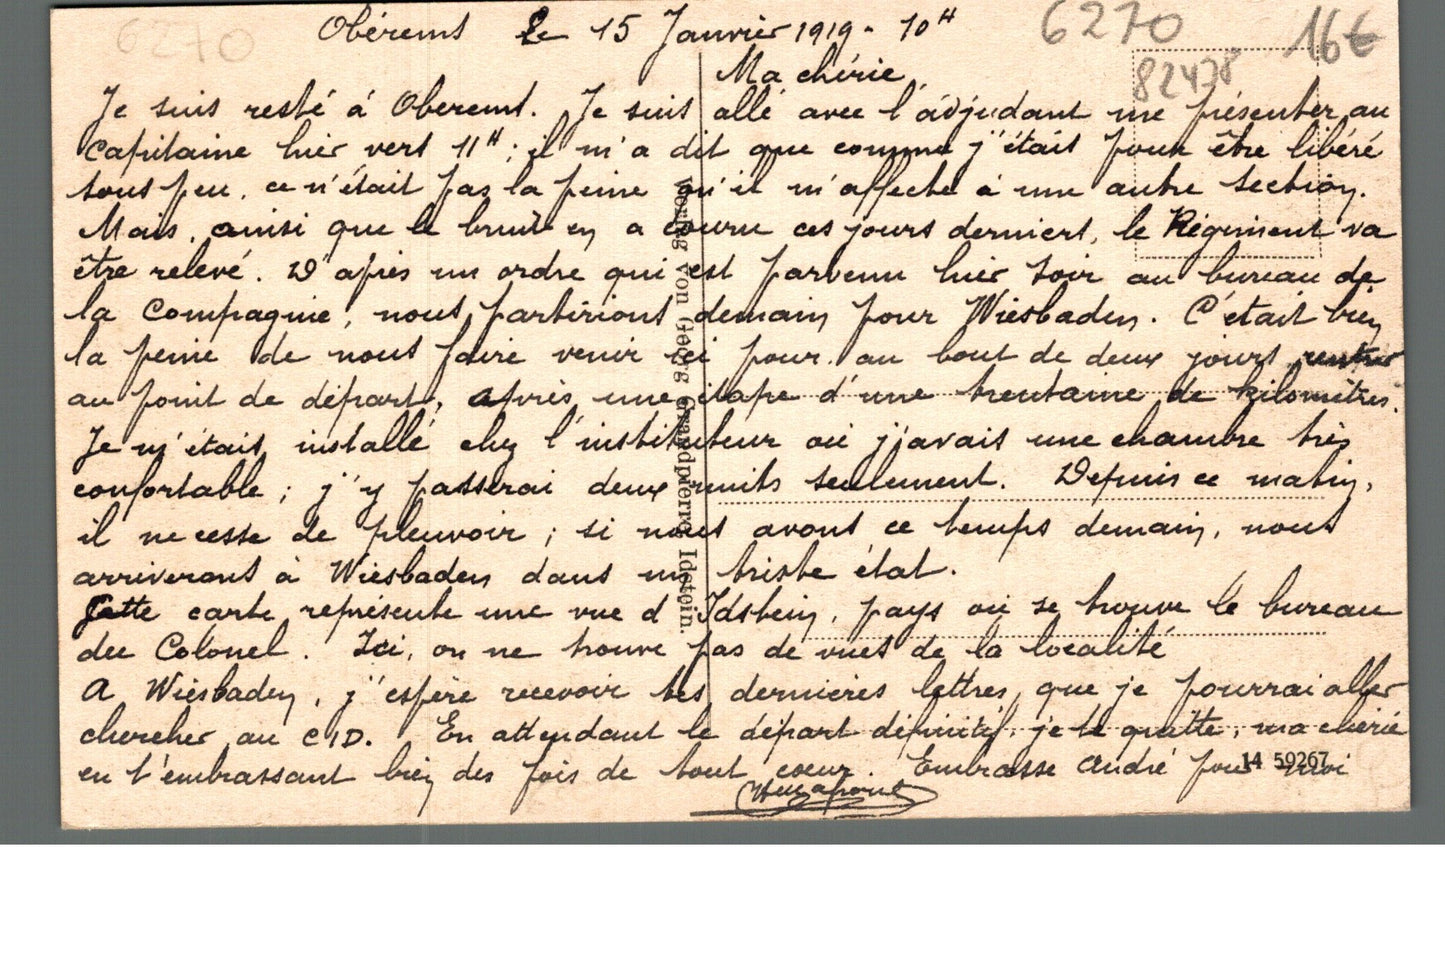 6270
Obérems le 15 Janvier 1919 - 10H
6270
16€
82478
Ma chérie,
Je suis resté à Oberems. Je suis allé avec l'adjudant me présenter au
Capitaine hier vers 11H ; il m'a dit que comme j'étais pour être libéré
sous peu, ce n'était pas la peine qu'il m'affecte à une autre section.
Mais, ainsi que le bruit en a couru ces jours derniers, le Régiment va
être relevé. D'après un ordre qui est parvenu hier soir au bureau de
la Compagnie, nous partirions demain pour Wiesbaden. C'était bien
la peine de nous faire venir ici pour, au bout de deux jours, rentrer
au point de départ, après une étape d'une trentaine de kilomètres.
Je m'étais installé chez l'instituteur où j'avais une chambre très
confortable ; j'y passerai deux nuits seulement. Depuis ce matin,
il ne cesse de pleuvoir ; si nous avons ce temps demain, nous
arriverons à Wiesbaden dans un triste état.
Cette carte représente une vue d'Idstein, pays où se trouve le bureau
du Colonel. Ici, on ne trouve pas de vues de la localité
A Wiesbaden, j'espère recevoir tes dernières lettres, que je pourrai aller
chercher au CID. En attendant le départ définitif, je te quitte, ma chérie
en t'embrassant bien des fois de tout cœur. Embrasse André pour moi
Verlag von Georg Grandpierre, Idstein.
14 59267